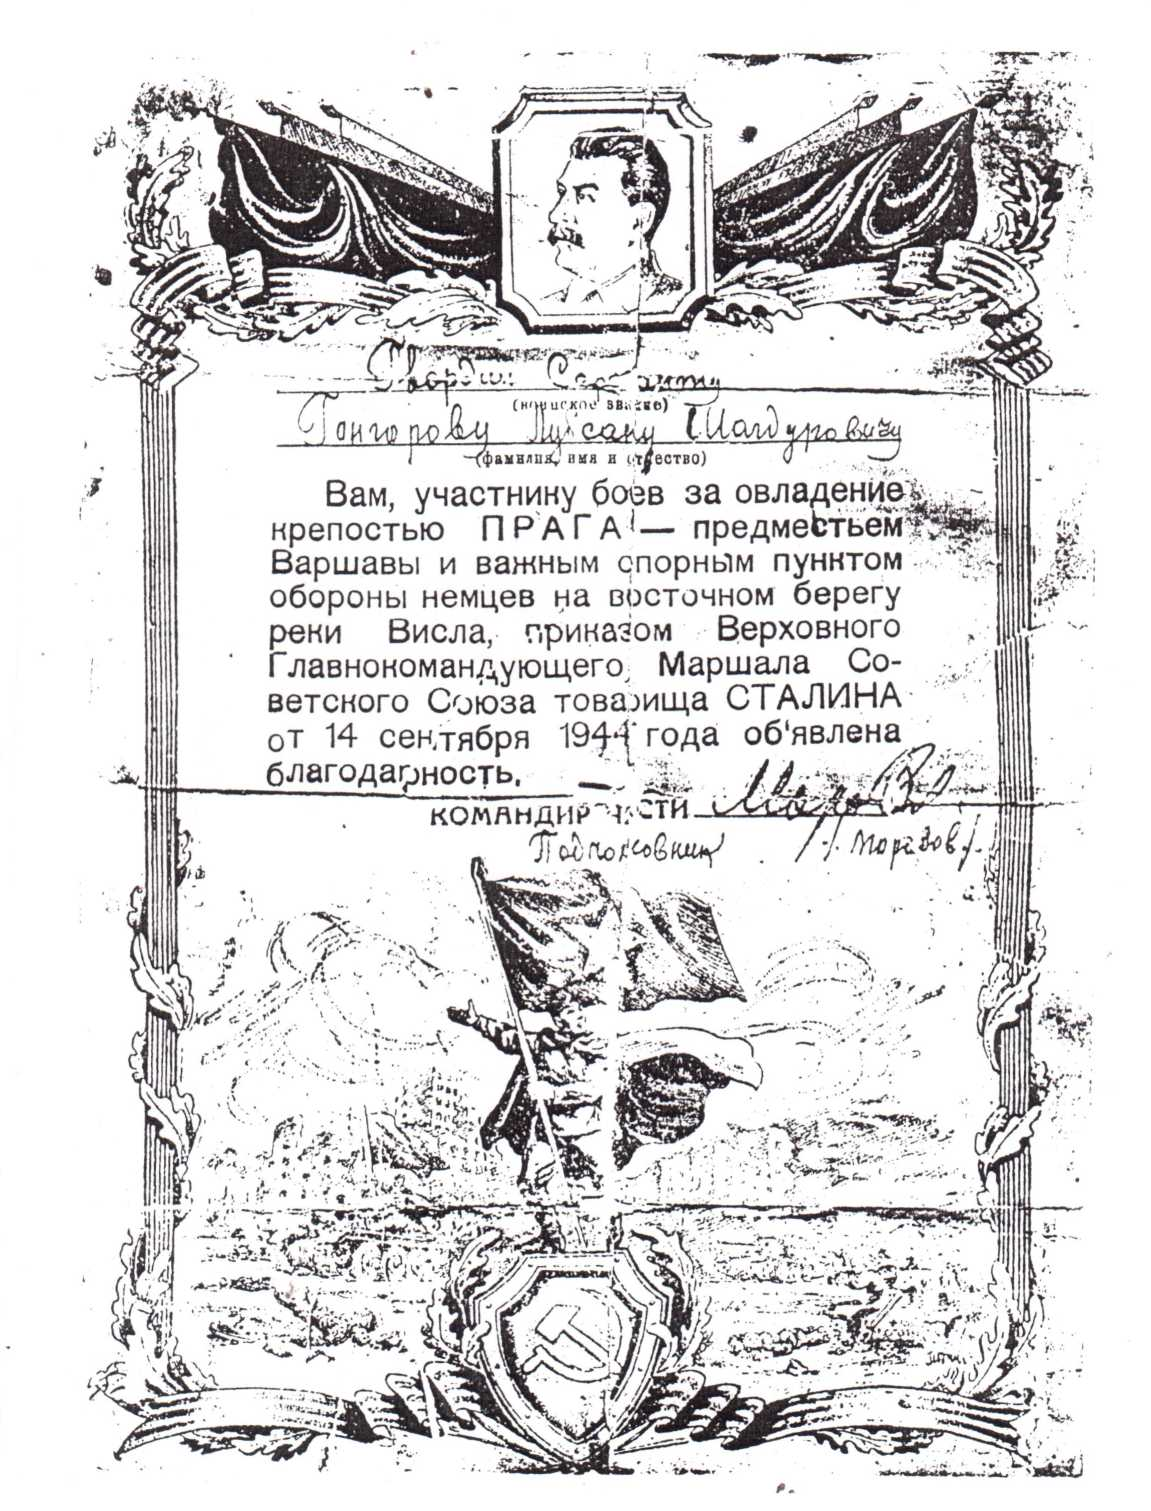 Гвардии Сержанту
(воинское звание)
Гонгорову Лубсану Шагдуровичу
(фамилия, имя и отчество)
Вам, участнику боев за овладение
крепостью ПРАГА — предместьем
Варшавы и важным опорным пунктом
обороны немцев на восточном берегу
реки Висла, приказом Верховного
Главнокомандующего, Маршала Со-
ветского Союза товарища СТАЛИНА
от 14 сентября 1944 года об'явлена
благодарность.
КОМАНДИР ЧАСТИ
Подполковник /Морозов/.